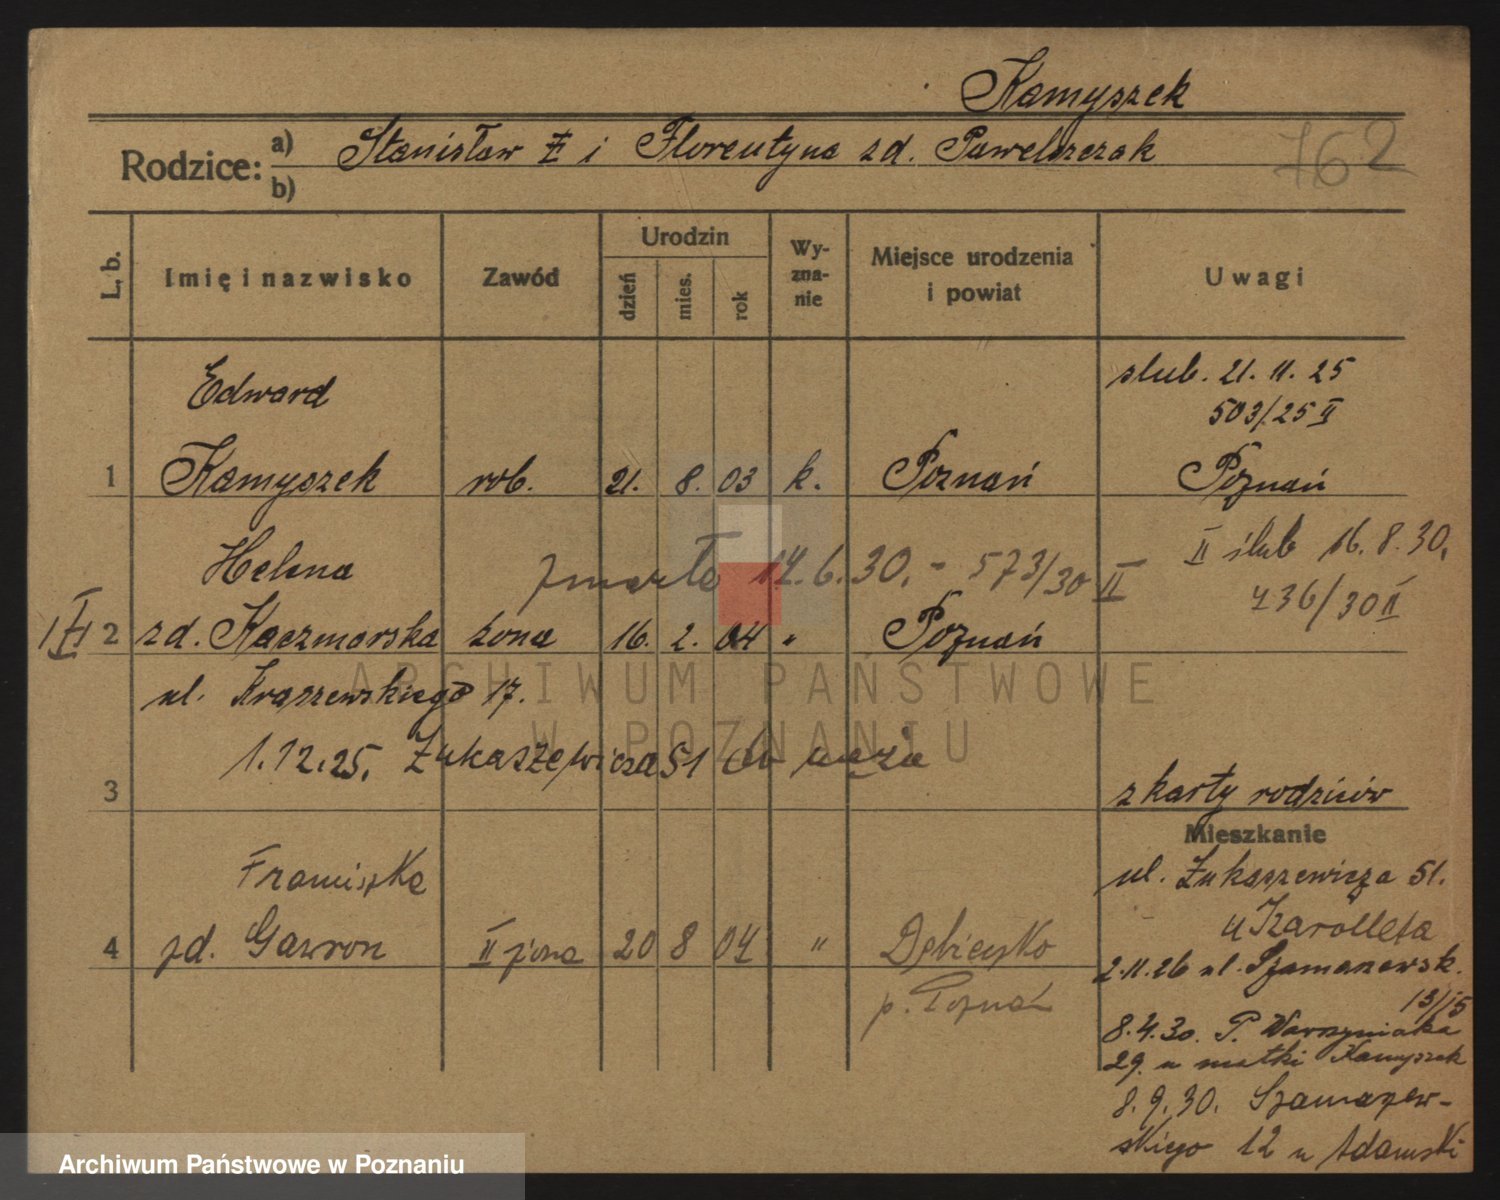 Kamyszek
Rodzice: a) Stanisław i Florentyna zd. Pawelszczak
b)
762
L. b.
Imię i nazwisko
Zawód
Urodzin
dzień
mies.
rok
Wy-
zna-
nie
Miejsce urodzenia
i powiat
Uwagi
Edward
slub. 21. 11. 25
503/25 II
1 Kamyszek rob. 21. 8. 03 k. Poznań Poznań
Helena zmarła 14. 6. 30. - 573/30 II
II ślub 16. 8. 30.
736/30 II
2 zd. Kaczmarska żona 16. 2. 04 " Poznań
ul. Kraszewskiego 17.
1.12.25. Łukaszewicza 51 męża
3
z karty rodziców
Mieszkanie
Franciszka
ul. Łukaszewicza 51.
4 zd. Gawron II żona 20 8 04 " Dębiensko
p. Poznań
u Karolleta
2.11.26 ul. Szamarzewsk.
13/15
8.4.30. P. Wawrzyniaka
29. u matki Kamyszek
8. 9. 30. Szamarzew-
skiego 12 u Adamski
ARCHIWUM PAŃSTWOWE
W POZNANIU
Archiwum Państwowe w Poznaniu